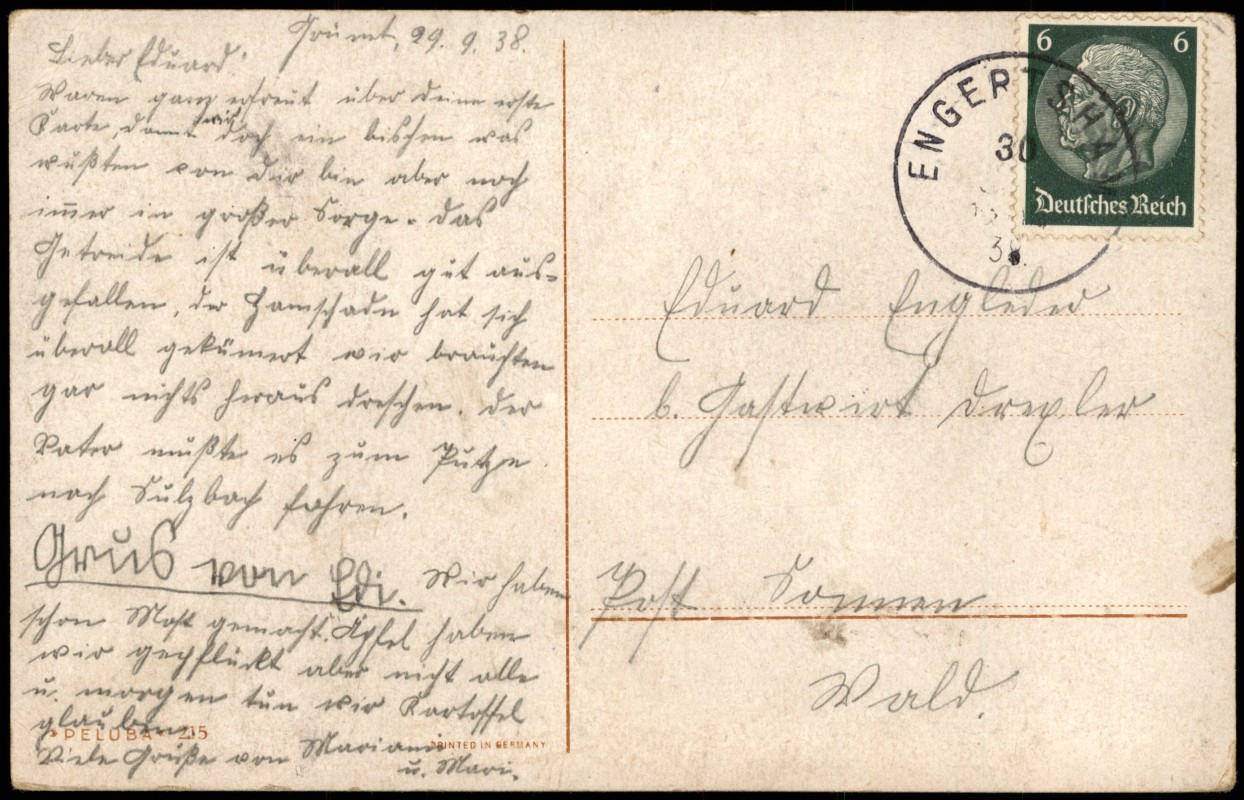 Grünet, 29. 9. 38.
Lieber Eduard!
Waren ganz erfreut über deine erste
Karte, damit wir doch ein bischen was
wußten von dir bin aber noch
im̄er in großer Sorge. Das
Getreide ist überall gut aus-
gefallen, der Hamschadn hat sich
überall gekümert wir brauchten
gar nichts heraus dreschen. Der
Vater mußte es zum Putze
nach Sulzbach fahren.
Grus von Edi. Wir haben
schon Most gemacht. Äpfel haben
wir gepflückt aber nicht alle
u. morgen tun wir Kartoffel
glauben
Viele Grüße von Mariani
u. Mari.
"PELUBA" 215
PRINTED IN GERMANY
ENGERTSHAM
30
38.
6 6
Deutsches Reich
Eduard Engleder
b. Gastwirt Drexler
Post Sonnen
Wald.